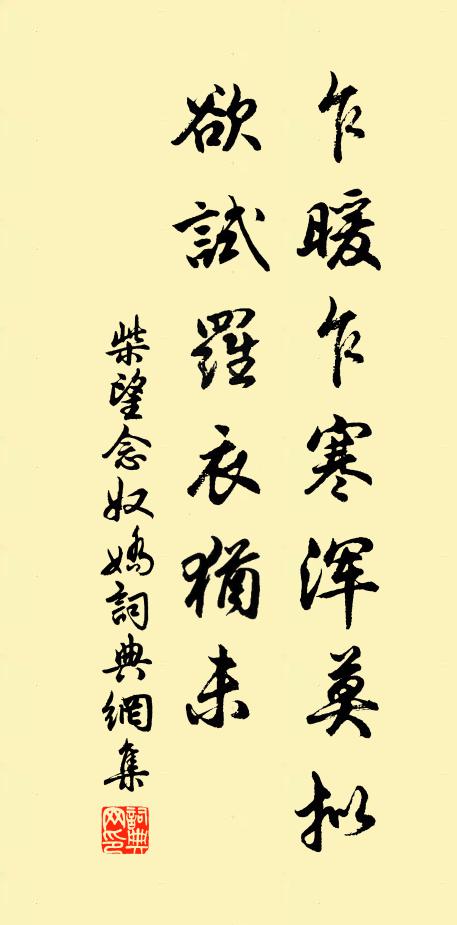 乍暖乍寒浑莫拟
欲試羅衣猶未
柴望念奴嬌詞典網集
詞典
网印